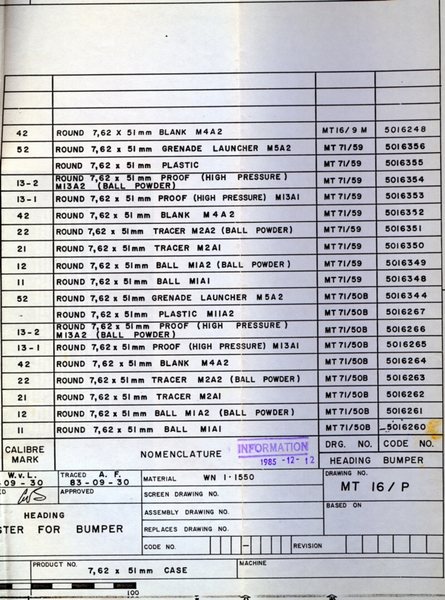 42 ROUND 7,62 X 51 mm BLANK M4A2 MT16/9 M 5016248
52 ROUND 7,62 x 51mm GRENADE LAUNCHER M5A2 MT 71/59 5016356
ROUND 7,62 x 51 mm PLASTIC MT 71/59 5016355
13-2 ROUND 7,62 x 51mm PROOF (HIGH PRESSURE) MT 71/59 5016354
M13A2 (BALL POWDER)
13-1 ROUND 7,62 x 51mm PROOF (HIGH PRESSURE) M13A1 MT 71/59 5016353
42 ROUND 7,62 x 51 mm BLANK M4A2 MT 71/59 5016352
22 ROUND 7,62 x 51mm TRACER M2A2 (BALL POWDER) MT 71/59 5016351
21 ROUND 7,62 x 51mm TRACER M2A1 MT 71/59 5016350
12 ROUND 7,62 x 51mm BALL M1A2 (BALL POWDER) MT 71/59 5016349
11 ROUND 7,62 x 51mm BALL M1A1 MT 71/59 5016348
52 ROUND 7,62 x 51mm GRENADE LAUNCHER M5A2 MT 71/50B 5016344
- ROUND 7,62 x 51mm PLASTIC M11A2 MT 71/50B 5016267
13-2 ROUND 7,62 x 51mm PROOF (HIGH PRESSURE) MT 71/50B 5016266
M13A2 (BALL POWDER)
13-1 ROUND 7,62 x 51mm PROOF (HIGH PRESSURE) M13A1 MT 71/50B 5016265
42 ROUND 7,62 x 51mm BLANK M4A2 MT 71/50B 5016264
22 ROUND 7,62 x 51mm TRACER M2A2 (BALL POWDER) MT 71/50B 5016263
21 ROUND 7,62 x 51mm TRACER M2A1 MT 71/50B 5016262
12 ROUND 7,62 x 51mm BALL M1A2 (BALL POWDER) MT 71/50B 5016261
11 ROUND 7,62 x 51mm BALL M1A1 MT 71/50B 5016260
CALIBRE MARK NOMENCLATURE DRG. NO. CODE NO.
INFORMATION
1985 -12- 12
HEADING BUMPER
W.v.L. TRACED A. F.
-09-30 83-09-30
APPROVED
MATERIAL WN 1-1550
SCREEN DRAWING NO.
ASSEMBLY DRAWING NO.
REPLACES DRAWING NO.
CODE NO. - REVISION
DRAWING NO.
MT 16/P
BASED ON
HEADING
STER FOR BUMPER
PRODUCT NO. MACHINE
7,62 x 51mm CASE
100